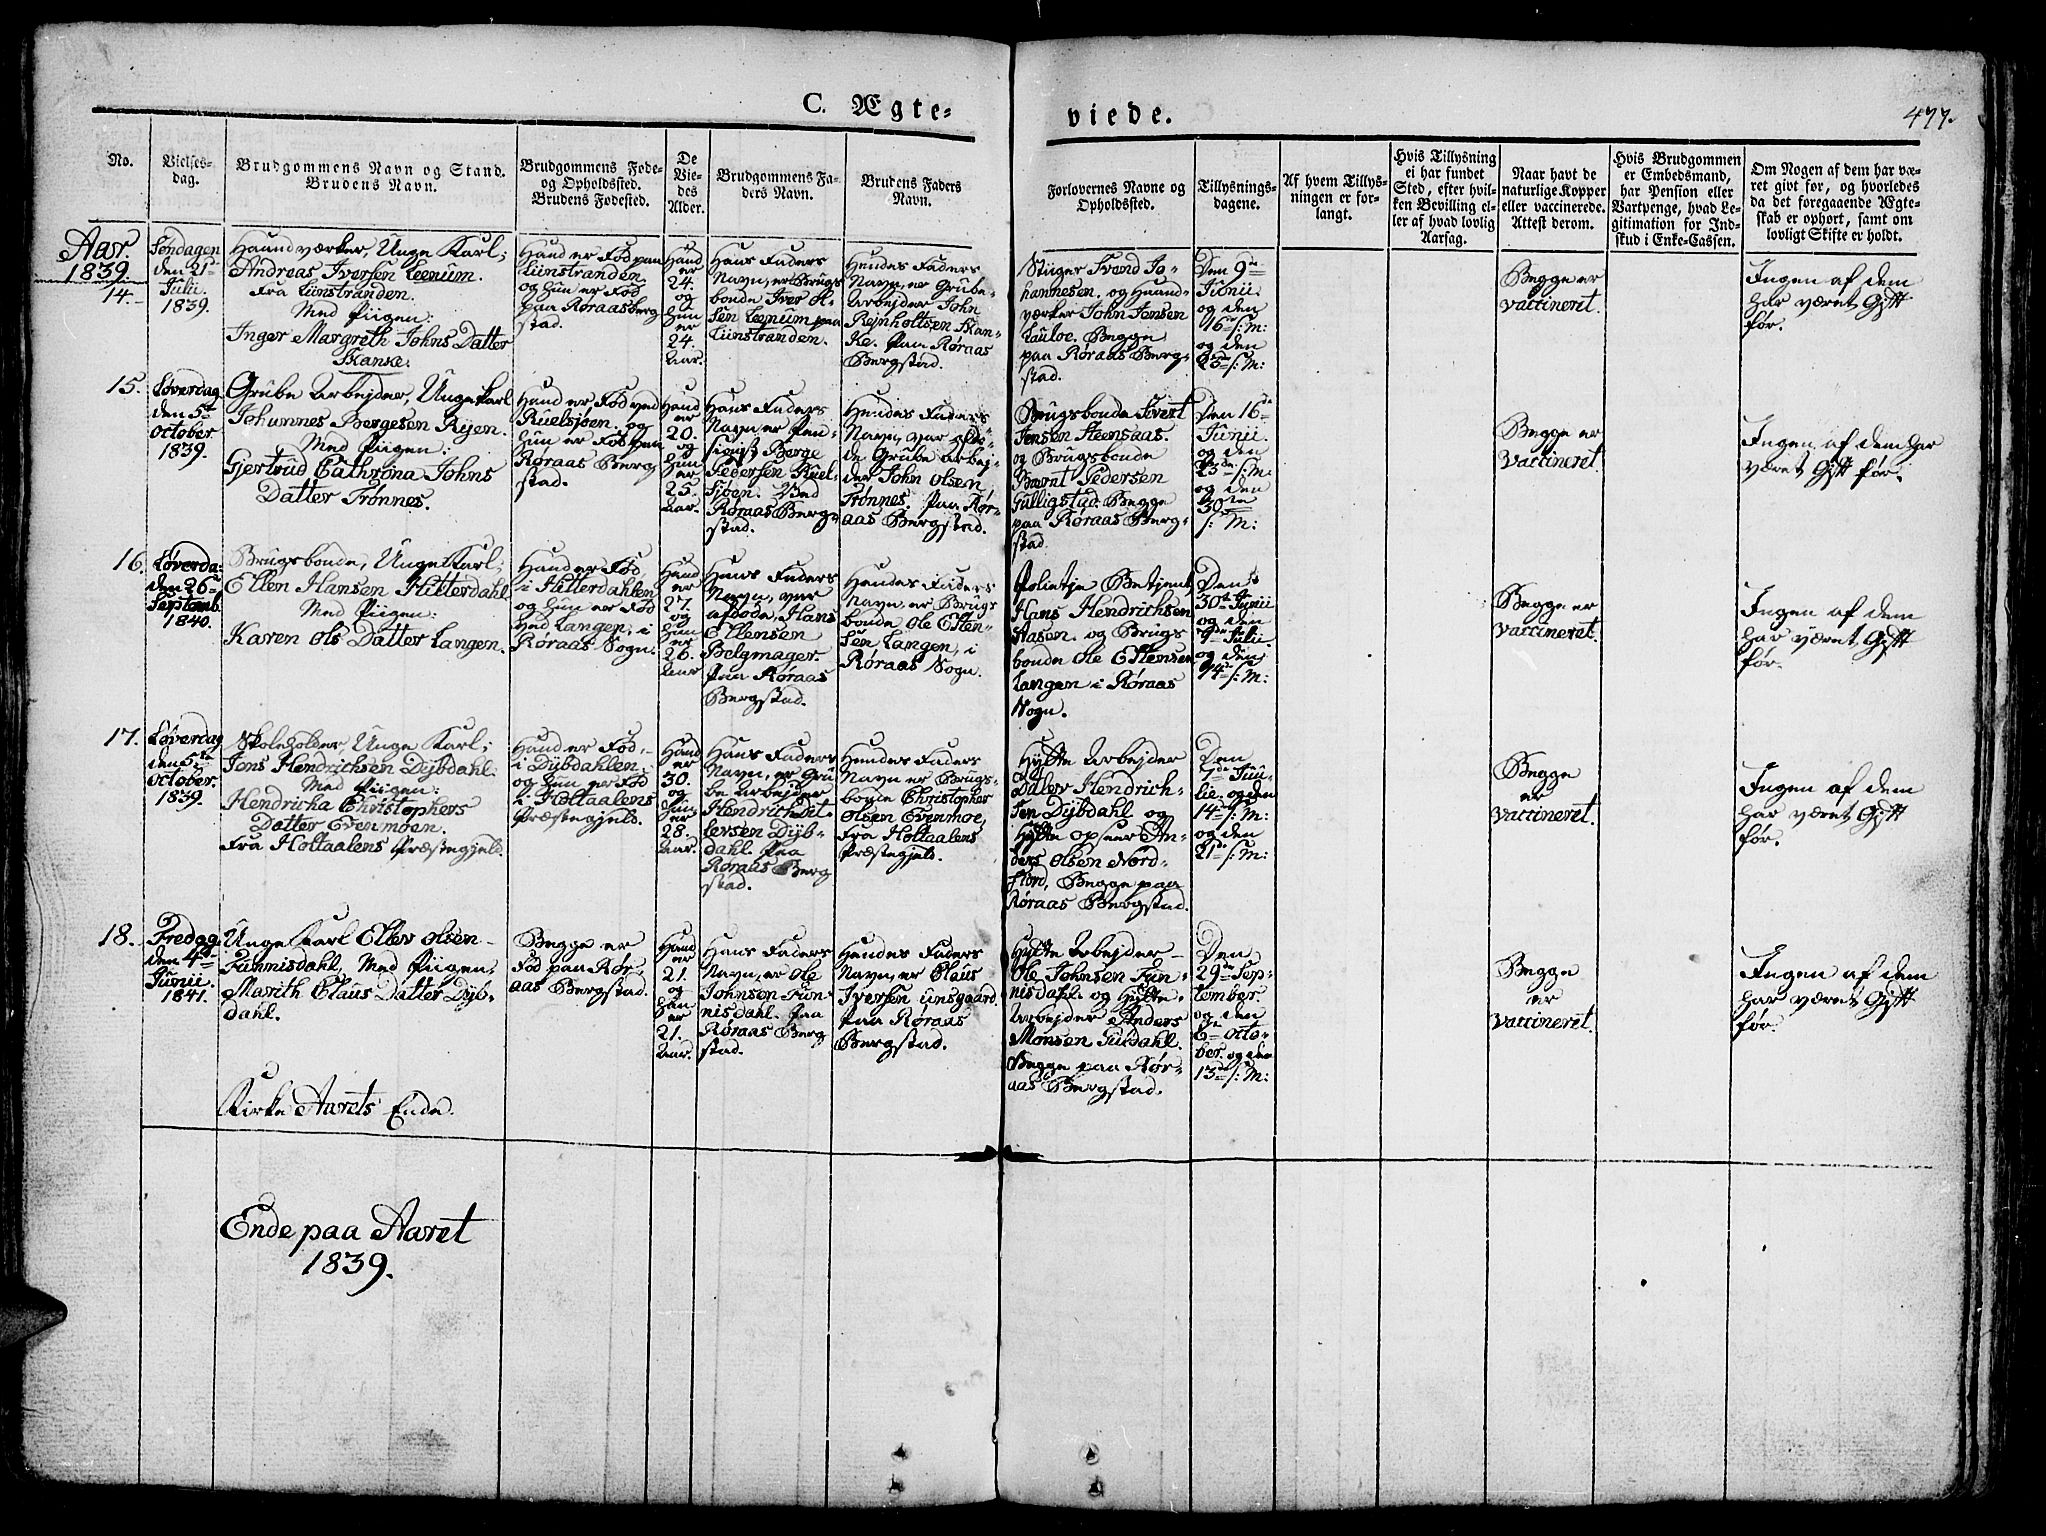 C. Ægte-
viede.
477.
No.
Vielses-
dag.
Brudgommens Navn og Stand.
Brudens Navn.
Brudgommens Føde-
og Opholdssted.
Brudens Fødested.
De
Vie-
des
Alder.
Brudgommens Fa-
ders Navn.
Brudens Faders
Navn.
Forlovernes Navne og
Opholdssted.
Tillysnings-
dagene.
Af hvem Tillys-
ningen er for-
langt.
Hvis Tillysning
ei har fundet
Sted, efter hvil-
ken Bevilling el-
ler af hvad lovlig
Aarsag.
Naar havt de
naturlige Kopper
eller vaccinerede.
Attest derom.
Hvis Brudgommen
er Embedsmand,
har Pension eller
Vartpenge, hvad Le-
gitimation for Ind-
skud i Enke-Cassen.
Om Nogen af dem har væ-
ret givt før, og hvorledes
da det foregaaende Ægte-
skab er ophørt, samt om
lovligt Skifte er holdt.
Aar.
1839.
14.
Søndagen
den 21de
Julii
1839.
Haandværker, Unge Karl;
Andreas Iversen Leenum.
Fra Lünstranden.
Med Piigen:
Inger Margreth Johns Datter
Skanke.
Hand er Fød paa
Lünstranden
og hun er Fød
paa Røraasberg
stad.
Hand
er
24.
og
hun
er
24.
Aar.
Hans Faders
Navn, er Brugs
bonde Iver
sen Leenum paa
Lünstranden.
Hendes Faders
Navn, er Grube-
Arbejder John
Rejnholtsen Skan-
ke. paa Røraas
Bergstad.
Stiiger Svend Jo-
hannesen. og Haand-
værker John Jensen
Begge
paa Røraas Berg-
stad.
Den 9de
Junii.
og den
16de s: M:
og den
23de s: M:
Begge er
vaccineret.
Ingen af dem
har været Gift
før.
15.
Løverdag
den 5te
October.
1839.
Grube Arbejder, Unge Karl
Johannes Bergesen Ryen.
Med Piigen:
Gjertrud Cathrina Johns
Datter Trønnes.
Hand er Fød ved
Ruelsjøen. og
hun er Fød paa
Røraas Berg
stad.
Hand
er
20.
og
hun
er
25.
Aar.
Hans Faders
Navn er Pen-
sionist Berge
Pedersen Ruel-
sjøen. Ved
Røraas Berg-
stad.
Hendes Faders
Navn, var afdø-
de Grube Arbej-
der John Olsen
Trønnes. Paa Rør-
aas Bergstad.
Brugsbonde Sivert
Jensen Steensaas.
og Brugsbonde
Bernt Pedersen
Gulligstad. Begge
paa Røraas Berg-
stad.
Den 16de
Junii.
og den
23de s: M:
og den
30te
s: M:
Begge er
vaccineret.
Ingen af dem har
været Gift før.
16.
Løverda-
den 26de
Septemb.
1840.
Brugsbonde, Unge Karl;
Ellen Hansen Hitterdahl.
Med Piigen:
Karen Ols Datter Langen.
Hand er Fød
i Hitterdahlen
og hun er Fød
ved Langen, i
Røraas Sogn.
Hand
er
27.
og
hun
er
26.
Aar
Hans Faders
Navn, var
afdøde, Hans
Ellensen
Belgmager.
paa Røraas
Bergstad.
Hendes Faders
Navn, er Brugs
bonde Ole Esten-
sen, Langen, i
Røraas Sogn.
Polietje Betjent
Hans Hendrichsen
Aasen. og Brugs
bonde Ole Estensen
Langen i Røraas
Sogn.
Den
30te Junii
og den
7de Julii.
og den
14de s: M:
Begge er
vaccineret.
Ingen af dem
har været Gift
før.
17.
Løverdag
den 5te
October.
1839.
Skoleholder, Unge Karl;
Jens Hendrichsen Dybdahl.
Med Piigen:
Hendricha Christophers
Datter Evenmoen.
Fra Holtaalens Præstegjeld.
Hand er Fød,
i Dybdahlen,
og hun er Fød
i Holtaalens
Præstegjeld.
Hand
er
30.
og
hun
er
28.
Aar.
Hans Faders
Navn, er Gru
be Arbejder
Hendrich Dit-
levsen Dyb-
dahl. Paa
Røraas Berg
stad.
Hendes Faders
Navn er Brugs-
bonde Christopher
Olsen Evenmoe,
Fra Holtaalens
Præstegjeld.
Hytte Arbejder
Hendrich-
sen Dybdahl og
Hytte opseer An-
ders Olsen Nord-
fiord. Begge paa
Røraas Bergstad.
Den
7de Jüü-
lie. og den
14de s: M:
og den
21de s: M:
Begge
er
vaccineret.
Ingen af dem
har været Gift
før.
18.
Fredag
den 4de
Junii.
1841.
Unge Karl Ellev Olsen
Funnisdahl, Med Piigen,
Marith Claus Datter Dyb-
dahl.
Begge er
Fød paa Rør-
aas Bergstad.
Hand
er
21.
og
hun
er
21.
Aar.
Hans Faders
Navn, er Ole
Johnsen Fun-
nisdahl. paa
Røraas Berg
stad.
Hendes Faders
Navn, er Claus
Iversen Unsgaard.
Paa Røraas
Bergstad.
Hytte Arbejder
Ole Johnsen Fun-
nisdahl. og Hytte
Arbejder Anders
Monsen Suldahl.
Begge paa Rør-
aas Bergstad.
Den
29de Sep-
tember.
og den
6te Octo-
ber. og den
13de s: M:
Begge
er
vaccineret.
Ingen af dem
har været Gift
før.
Kirke Aarets Ende.
Ende paa Aaret
1839.